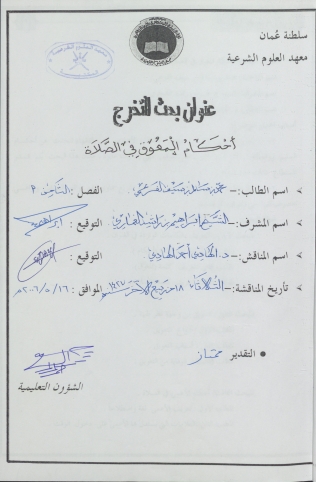 سلطنة عُمان
معهد العلوم الشرعية
عنوان بحث التخرج
أحكام المعوق في الصلاة
اسم الطالب:- محمد سالم سيف الفصل: الثامن
اسم المشرف:- الشيخ إبراهيم بن راشد الغاربي التوقيع:
اسم المناقش:- د. الحاجي أحمد الحاجي التوقيع:
تاريخ المناقشة:- الثلاثاء ١٨ من ربيع الآخر ١٤٢٧ الموافق: ١٦/٥/٢٠٠٦م
التقدير ممتاز
الشؤون التعليمية